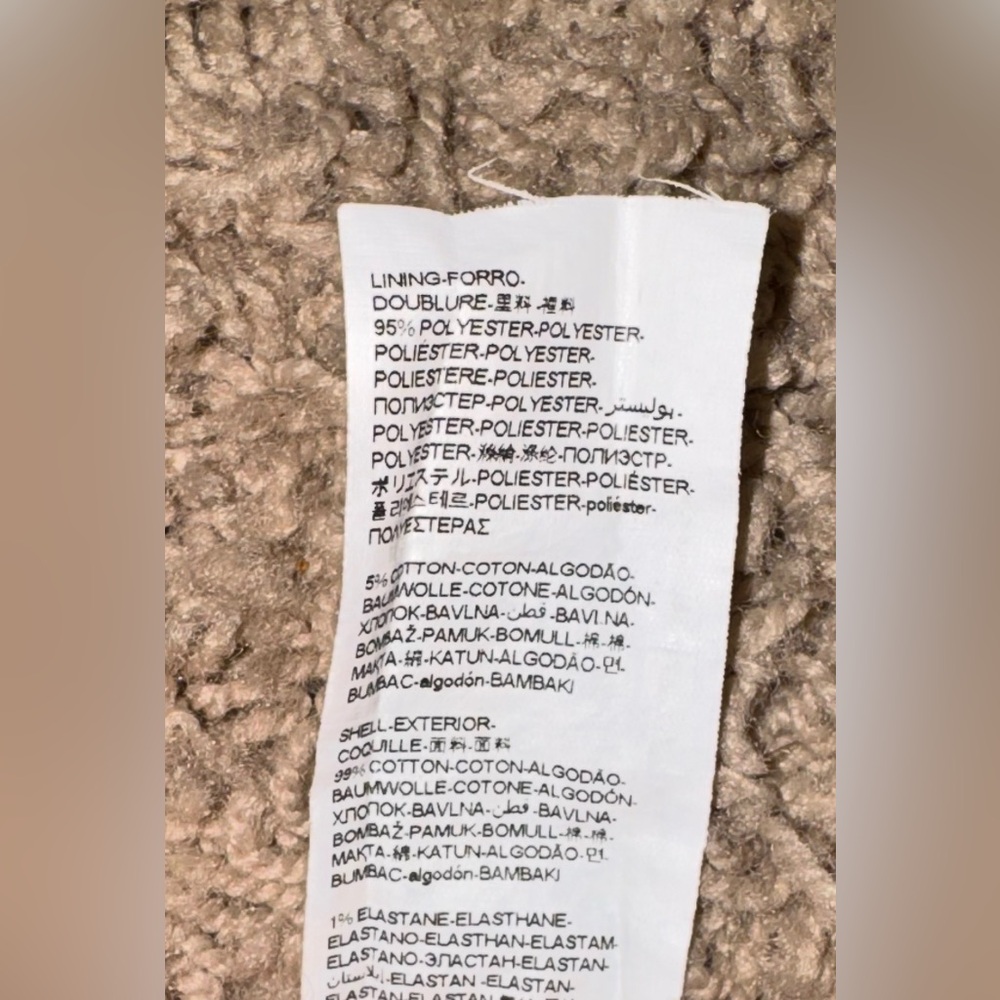 LINING-FORRO-
DOUBLURE-里料-裡料
95% POLYESTER-POLYESTER-
POLIÉSTER-POLYESTER-
POLIESTERE-POLIESTER-
ПОЛИЭСТЕР-POLYESTER-بوليستر-
POLYESTER-POLIESTER-POLIESTER-
POLYESTER-滌綸-涤纶-ПОЛИЭСТР-
ポリエステル-POLIESTER-POLIÉSTER-
폴리에스테르-POLIESTER-poliéster-
ΠΟΛΥΕΣΤΕΡΑΣ
5% COTTON-COTON-ALGODÃO-
BAUMWOLLE-COTONE-ALGODÓN-
ХЛОПОК-BAVLNA-قطن-BAVLNA-
BOMBAŽ-PAMUK-BOMULL-棉-棉-
МАКТА-綿-KATUN-ALGODÃO-면-
BUMBAC-algodón-BAMBAKI
SHELL-EXTERIOR-
COQUILLE-面料-面料
99% COTTON-COTON-ALGODÃO-
BAUMWOLLE-COTONE-ALGODÓN-
ХЛОПОК-BAVLNA-قطن-BAVLNA-
BOMBAŽ-PAMUK-BOMULL-棉-棉-
МАКТА-綿-KATUN-ALGODÃO-면-
BUMBAC-algodón-BAMBAKI
1% ELASTANE-ELASTHANE-
ELASTANO-ELASTHAN-ELASTAM-
ELASTANO-ЭЛАСТАН-ELASTAN-
إيلاستان-ELASTAN -ELASTAN-
ELASTAN-ELASTAN